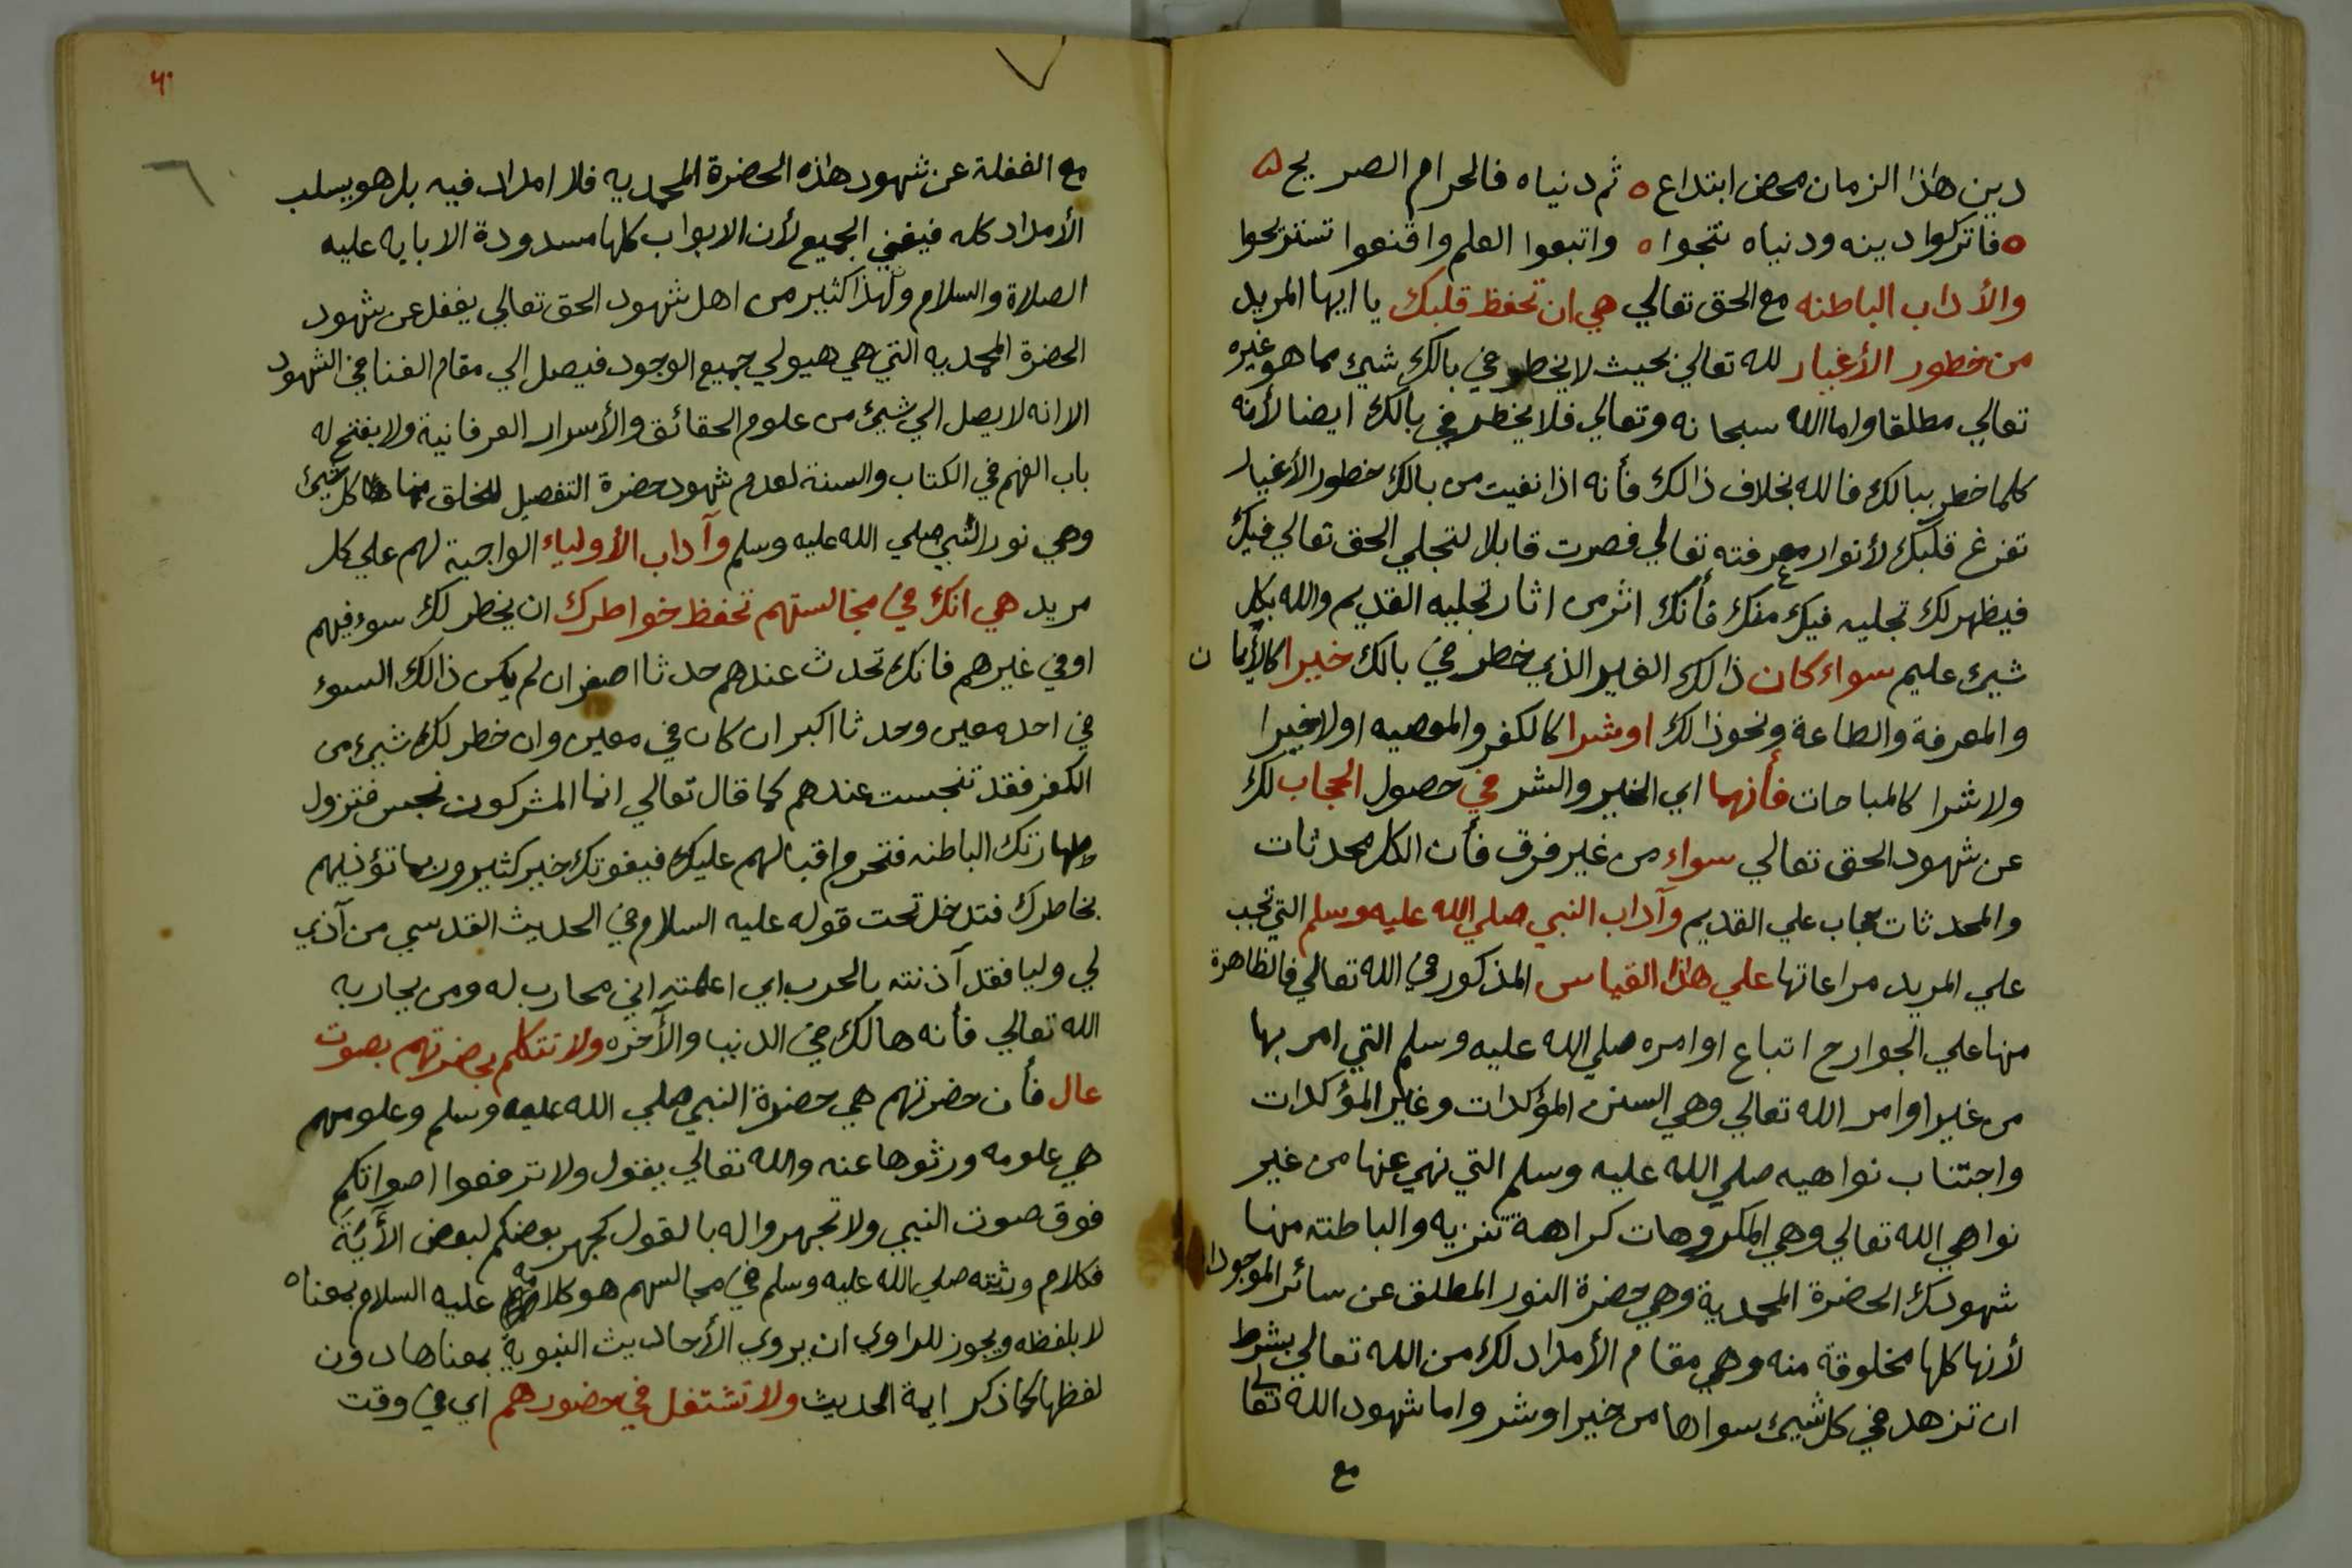 دين هاذا الزمان محض ابتداع ه ثم دنياه فالحرام الصريح ه
ه فاتركوا دينه ودنياه تنجوا ه واتبعوا العلم واقنعوا تستريحوا
والأداب الباطنه مع الحق تعالي هي ان تحفظ قلبك يا ايها المريد
من خطور الأغيار لله تعالي بحيث لا يخطر في بالك شيئ مما هو غيره
تعالي مطلقا واما الله سبحانه وتعالي فلا يخطر في بالك ايضا لأنه
كلما خطر ببالك فالله بخلاف ذالك فأنه اذا نفيت من بالك خطور الأغيار
تفرغ قلبك لأنوار معرفته تعالي فصرت قابلا لتجلي الحق تعالي فيك
فيظهر لك تجليه فيك منك فأنك اثر من اثار تجليه القديم والله بكل
شيئ عليم سواء كان ذالك الغير الذي خطر في بالك خيرا كالأيمان
والمعرفة والطاعة ونحو ذالك او شرا كالكفر والمعصيه او لا خيرا
ولا شرا كالمباحات فأنهما اي الخير والشر في حصول الحجاب لك
عن شهود الحق تعالي سواء من غير فرق فأن الكل محدثات
والمحدثات حجاب علي القديم وآداب النبي صلي الله عليه وسلم التي تجب
علي المريد مراعاتها علي هاذا القياس المذكور في الله تعالي فالظاهرة
منها علي الجوارح اتباع اوامره صلي الله عليه وسلم التي امر بها
من غير اوامر الله تعالي وهي السنن المؤكدات وغير المؤكدات
واجتناب نواهيه صلي الله عليه وسلم التي نهي عنها من غير
نواهي الله تعالي وهي المكروهات كراهة تنزيه والباطنة منها
شهودك الحضرة المحمدية وهي حضرة النور المطلق عن سائر الموجودات
لأنها كلها مخلوقة منه وهي مقام الأمداد لك من الله تعالي بشرط
ان تزهد في كل شيئ سواها من خير او شر واما شهود الله تعالي
مع
٦
مع الغفلة عن شهود هاذه الحضرة المحمديه فلا امداد فيه بل هو يسلب
الأمداد كله فيفني الجميع لأن الابواب كلها مسدودة الا بابه عليه
الصلاة والسلام ولهذا كثير من اهل شهود الحق تعالي يغفل عن شهود
الحضرة المحمديه التي هي هيولي جميع الوجود فيصل الي مقام الفنا في الشهود
الا انه لا يصل الي شيئ من علوم الحقائق والأسرار العرفانية ولا يفتح له
باب الفهم في الكتاب والسنة لعدم شهود حضرة التفصيل للخلق منها كل شيئ
وهي نور النبي صلي الله عليه وسلم وآداب الأولياء الواجبة لهم علي كل
مريد هي انك في مجالستهم تحفظ خواطرك ان يخطر لك سوء فيهم
او في غيرهم فانك تحدث عندهم حدثا اصغر ان لم يكن ذالك السوء
في احد معين وحدثا اكبر ان كان في معين وان خطر لك شيئ من
الكفر فقد تنجست عندهم كما قال تعالي انما المشركون نجس فتزول
طهارتك الباطنه فتحرم اقبالهم عليك فيفوتك خير كثير وربما تؤذيهم
بخاطرك فتدخل تحت قوله عليه السلام في الحديث القدسي من آذي
لي وليا فقد آذنته بالحرب اي اعلمته اني محارب له ومن يحاربه
الله تعالي فأنه هالك في الدنيا والآخره ولا تتكلم بحضرتهم بصوت
عال فأن حضرتهم هي حضرة النبي صلي الله عليه وسلم وعلومهم
هي علومه ورثوها عنه والله تعالي يقول ولا ترفعوا اصواتكم
فوق صوت النبي ولا تجهروا له بالقول كجهر بعضكم لبعض الأية
فكلام ورثته صلي الله عليه وسلم في مجالسهم هو كلامه عليه السلام بمعناه
لا بلفظه ويجوز للراوي ان يروي الأحاديث النبوية بمعناها دون
لفظها كما ذكر ايمة الحديث ولا تشتغل في حضورهم اي في وقت